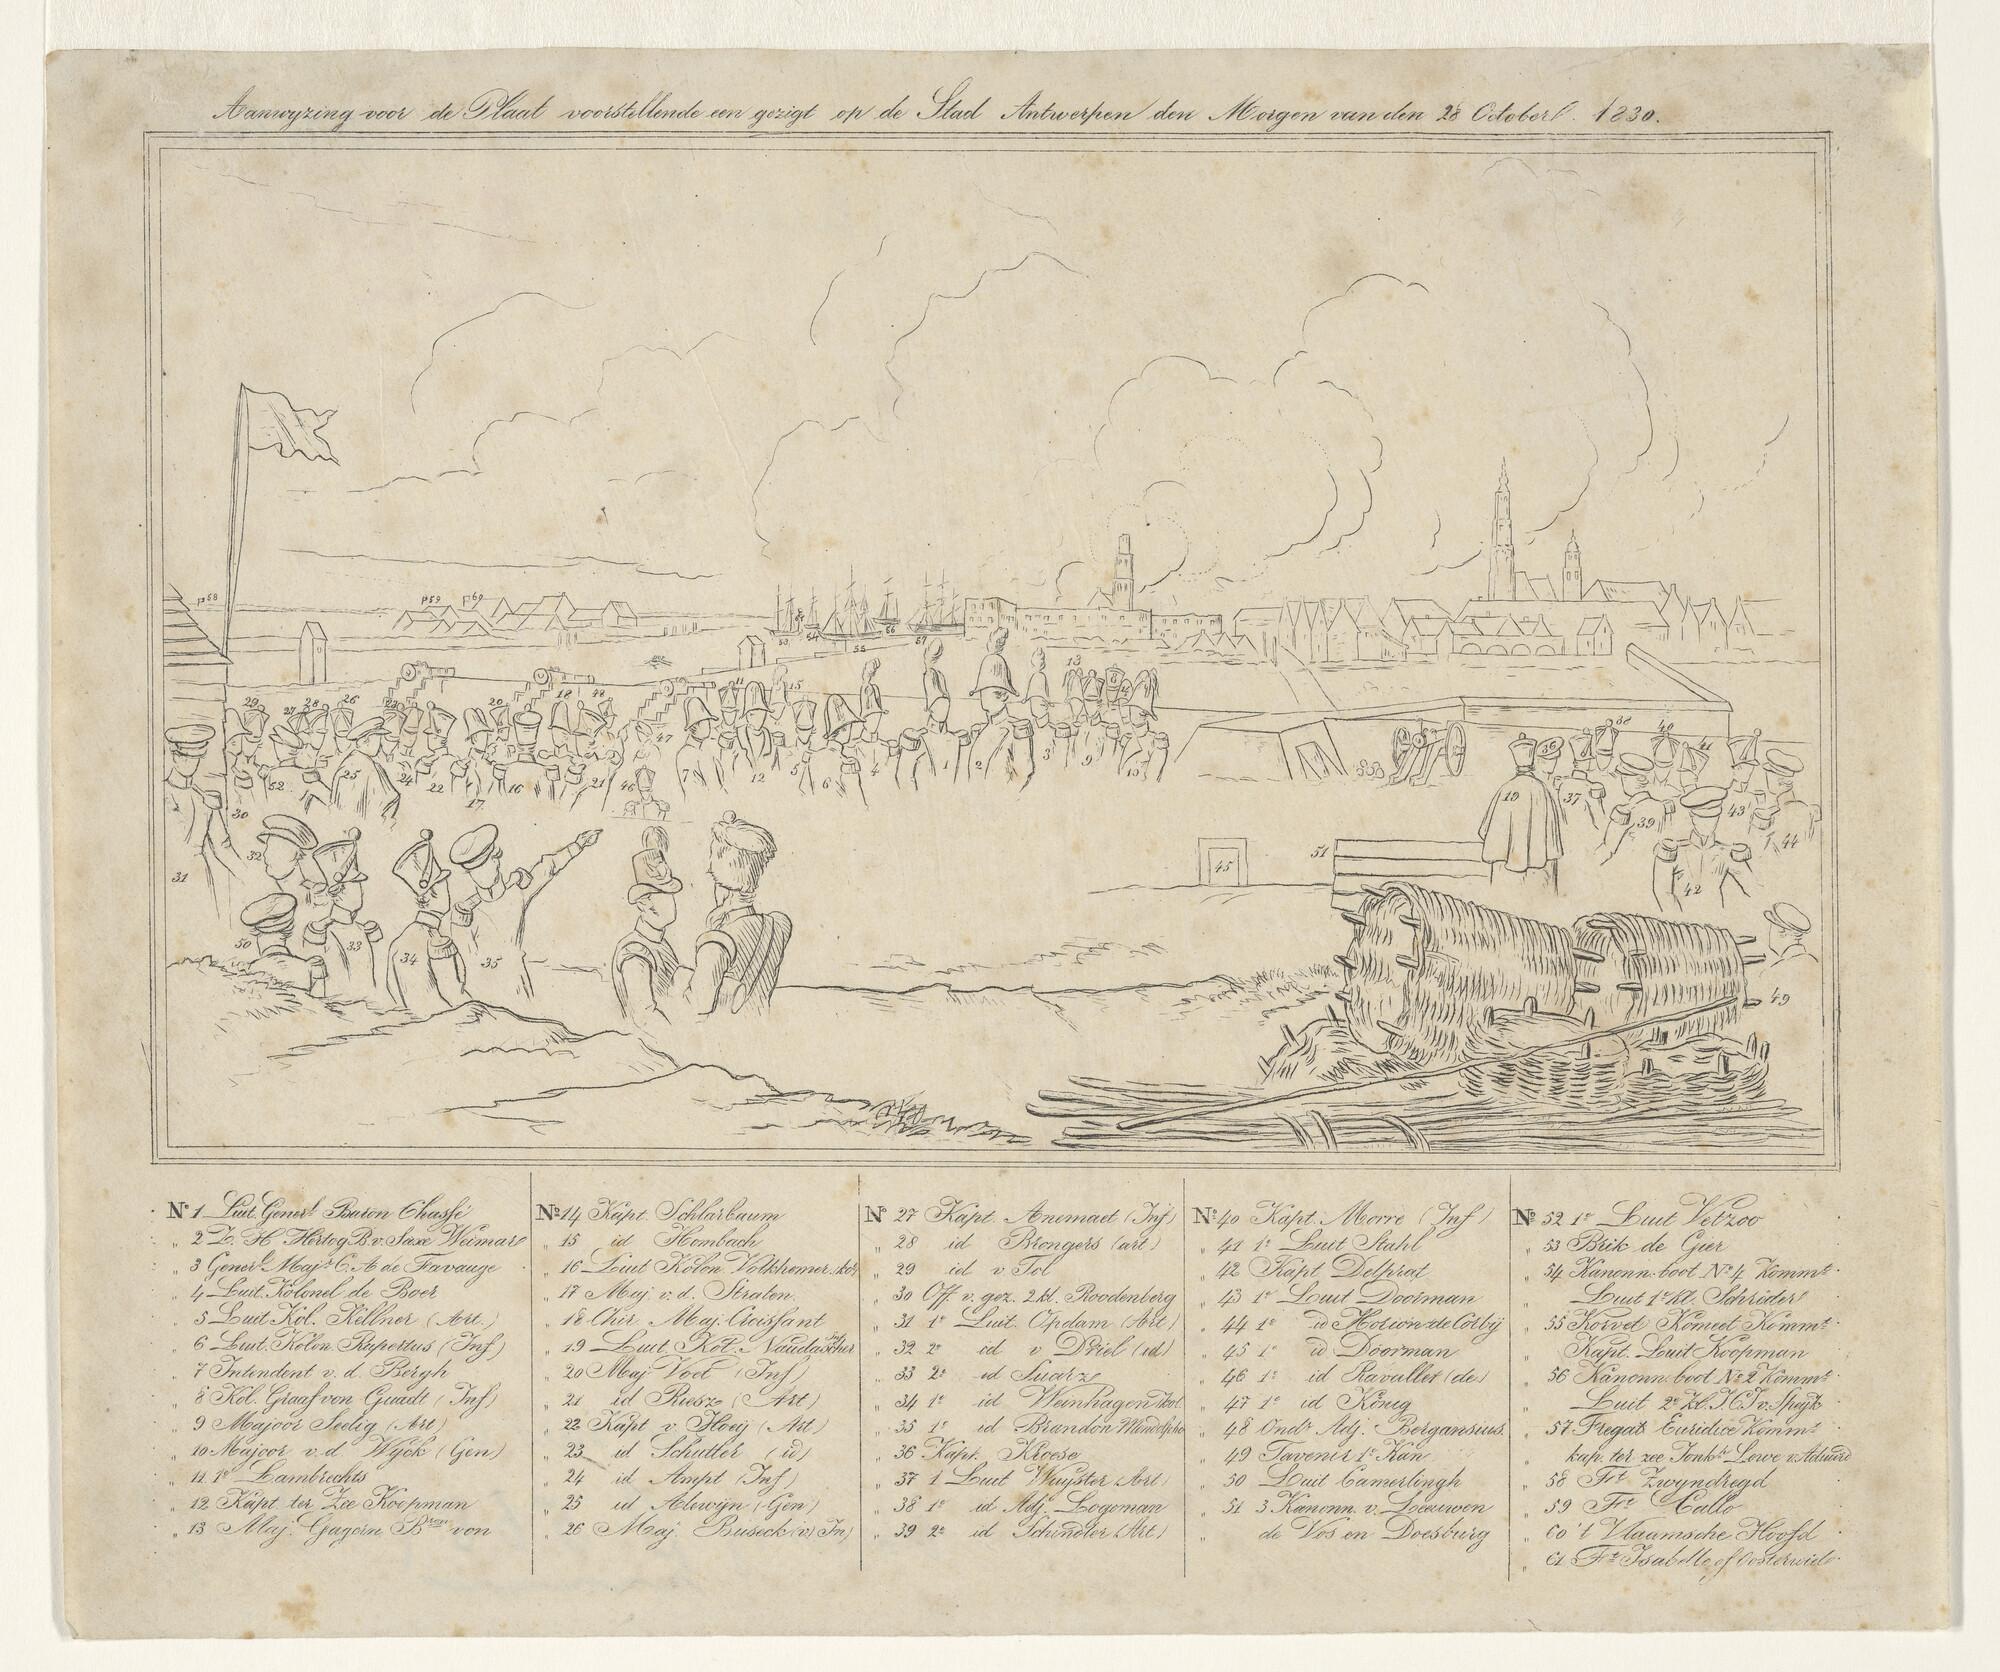 Aanwyzing voor de Plaat voorstellende een gezigt op de Stad Antwerpen den Morgen van den 28 October 1830.
No 1 Luit. Generl. Baron Chassé
„ 2 Z. H. Hertog B. v. Saxe Weimar
„ 3 Generl. Majr. C. A de Favauge
„ 4 Luit. Kolonel de Boer
„ 5 Luit. Kol. Kellner (Art.)
„ 6 Luit. Kolon. Rupertus (Inf)
„ 7 Intendent v. d. Bergh
„ 8 Kol. Graaf von Quadt (Inf)
„ 9 Majoor Seelig (Art)
„ 10 Majoor v. d. Wyck (Gen)
„ 11 1e Lambrechts
„ 12 Kapt. ter Zee Koopman
„ 13 Maj. Gagern Bron von
No 14 Kapt. Schlarbaum
„ 15 id Hombach
„ 16 Luit Kolon. Volkhemer
„ 17 Maj. v. d. Straten.
„ 18 Chir. Maj. Croissant
„ 19 Luit. Kol. Naudascher
„ 20 Maj. Voet (Inf)
„ 21 id Riesz (Art)
„ 22 Kapt v. Hoeij (Art)
„ 23 id Schutter (id)
„ 24 id Ampt (Inf)
„ 25 id Alewijn (Gen)
„ 26 Maj. Buseck (v) In)
No 27 Kapt. Anemaet (Inf)
„ 28 id Brongers (art)
„ 29 id v. Tol
„ 30 Off. v. gez. 2 kl. Roodenberg
„ 31 1e Luit. Opdam (Art)
„ 32 2e id v Driel (id)
„ 33 2e id Suarz
„ 34 1e id Weinhagen
„ 35 1e id Brandon
„ 36 Kapt. Kroese
„ 37 1 Luit Wuijster (Art)
„ 38 1e id Adj. Logoman
„ 39 2e id Schindler (Art)
No 40 Kapt. Morre (Inf)
„ 41 1e Luit Stahl
„ 42 Kapt Delprat
„ 43 1e Luit Doorman
„ 44 1e id Hotion de Corbij
„ 45 1e id Doorman
„ 46 1e id Ravallet (de)
„ 47 1e id König
„ 48 Ondr Adj. Bergansius.
„ 49 Tavenir 1e Kan
„ 50 Luit Camerlingh
„ 51 3 Kanonn. v. Leeuwen
„ de Vos en Doesburg
No 52 1e Luit Vetzoo
„ 53 Brik de Gier
„ 54 Kanonn. boot No 4 Kommt
„ Luit 1e kl. Schrider
„ 55 Korvet Komeet Kommt
„ Kapt. Luit Koopman
„ 56 Kanonn. boot No 2 Kommt
„ Luit 2e kl. J. C. J. v. Speijk
„ 57 Fregat Euridice Kommt
„ kap. ter zee Jonkh Lewe v. Aduard
„ 58 Ft. Zwyndregd
„ 59 Ft Callo
„ 60 't Vlaamsche Hoofd
„ 61 Ft Isabelle of Oosterweel